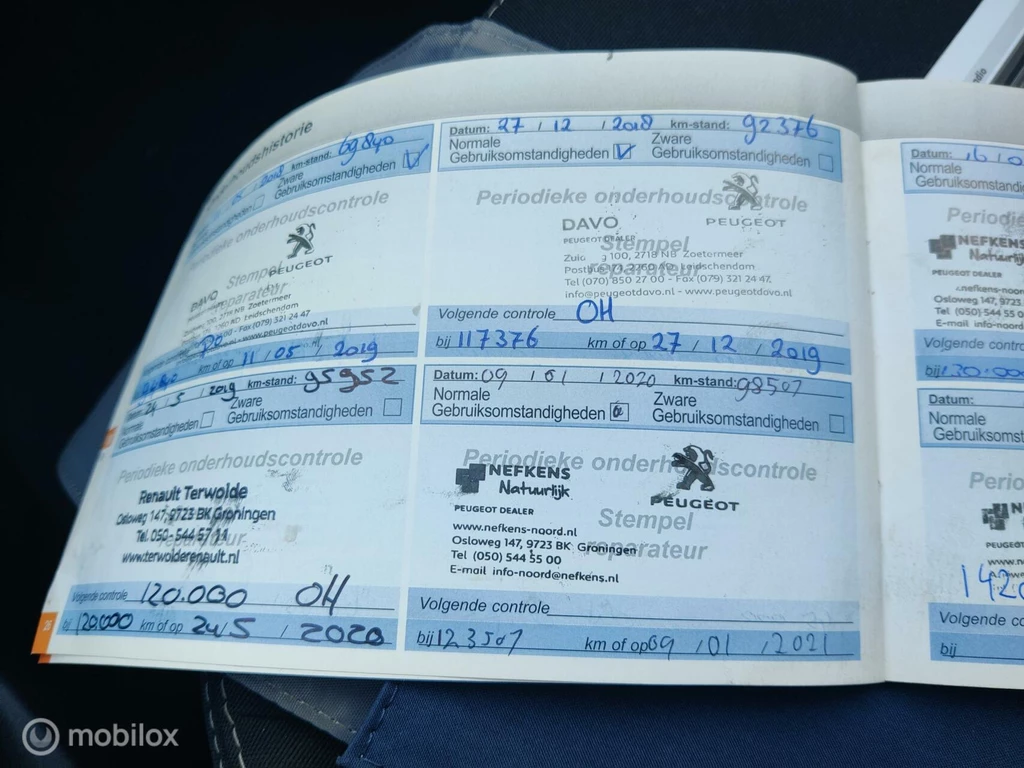 onderhoudshistorie
05 / 2018 km-stand: 69840
Zware
Gebruiksomstandigheden
Periodieke onderhoudscontrole
Stempel
reparateur
PEUGEOT
DAVO
100, 2718 NB Zoetermeer
Leidschendam
Fax (079) 321 24 47
www.peugeotdavo.nl
km of op 11 / 05 / 2019
Datum: 27 / 12 / 2018 km-stand: 92376
Normale
Gebruiksomstandigheden
Zware
Gebruiksomstandigheden
Periodieke onderhoudscontrole
Stempel
reparateur
DAVO
PEUGEOT
PEUGEOT DEALER
100, 2718 NB Zoetermeer
Leidschendam
Tel (070) 850 27 00 - Fax (079) 321 24 47
info@peugeotdavo.nl - www.peugeotdavo.nl
Volgende controle OH
bij 117376 km of op 27 / 12 / 2019
24 / 5 / 2019 km-stand: 95952
Normale
Gebruiksomstandigheden
Zware
Gebruiksomstandigheden
Periodieke onderhoudscontrole
reparateur
Renault Terwolde
Osloweg 147, 9723 BK Groningen
www.terwolderenault.nl
Volgende controle 120.000 OH
bij 120.000 km of op 24/5 / 2020
26
Datum: 09 / 01 / 2020 km-stand: 98507
Normale
Gebruiksomstandigheden
Zware
Gebruiksomstandigheden
Periodieke onderhoudscontrole
Stempel
reparateur
NEFKENS
Natuurlijk
PEUGEOT
PEUGEOT DEALER
www.nefkens-noord.nl
Osloweg 147, 9723 BK Groningen
Tel (050) 544 55 00
E-mail info-noord@nefkens.nl
Volgende controle
bij 123507 km of op 09 / 01 / 2021
Datum: 16
Normale
Gebruiksomstandig
Periodie
NEFKENS
Natuurlijk
PEUGEOT DEALER
Osloweg 147, 9723
Tel (050) 544 55 0
E-mail info-noord
Volgende contro
bij 130.000
Datum:
Normale
Gebruiksomst
Perio
PEUGEOT
142
Volgende co
bij
mobilox